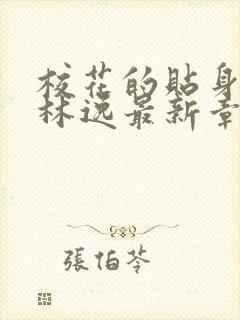 校花的貼身
林逸最新章
張伯苓